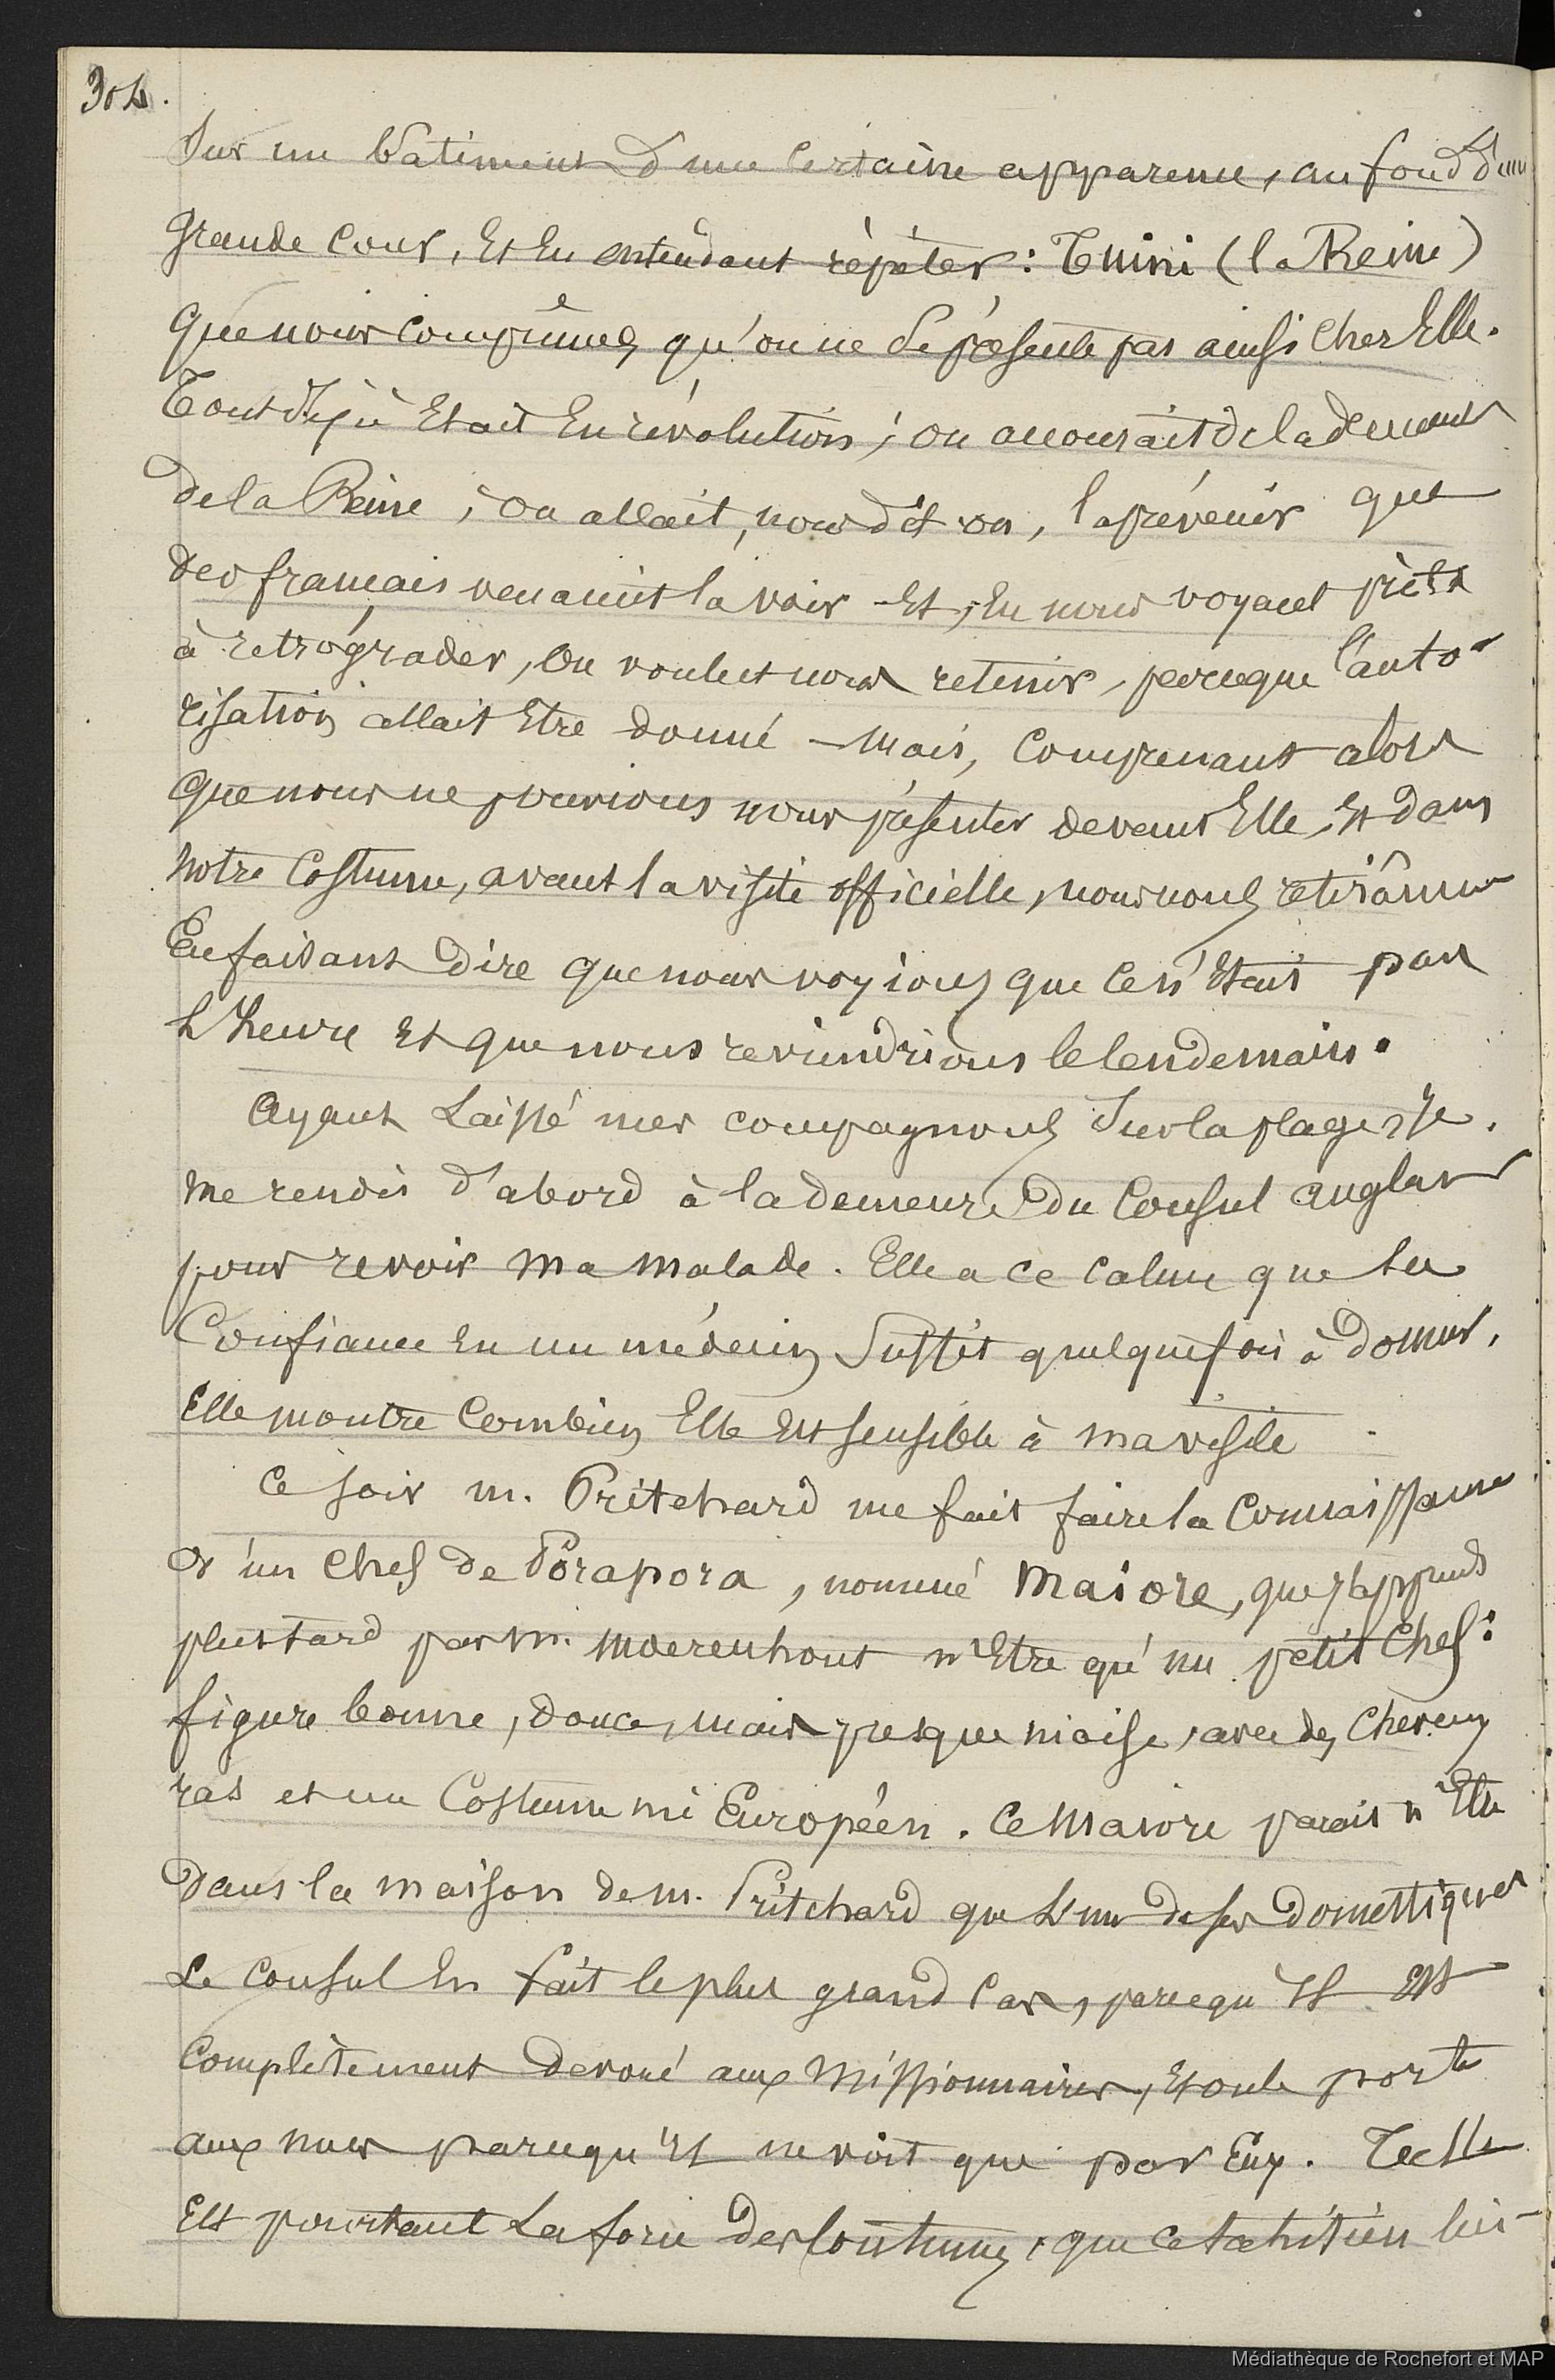 304.
Sur un bâtiment d'une certaine apparence, au fond d'une
grande cour, et en entendant répéter : Tuini (la Reine)
que nous comprîmes qu'on ne se présente pas ainsi chez Elle.
Tout déjà était en révolution ; on accourait de la demeure
de la Reine ; on allait, nous dit on, la prévenir que
des français venaient la voir - et, en nous voyant prêts
à rétrograder, on voulut nous retenir, parceque l'auto-
risation allait être donné - mais, comprenant alors
que nous ne pouvions nous présenter devant Elle, et dans
notre costume, avant la visite officielle, nous nous retirâmes
en faisant dire que nous voyions que ce n'était pas
l'heure et que nous reviendrions le lendemain.
Ayant laissé mes compagnons sur la plage, je
me rendis d'abord à la demeure du Consul anglais
pour revoir ma malade. Elle a ce calme que la
Confiance en un médecin suffit quelquefois à donner.
Elle montre combien Elle est sensible à ma visite
Ce soir m. Pritchard me fait faire la connaissance
d'un chef de Porapora, nommé Maiore, que j'appris
plus tard par m. Moerenhout n'être qu'un petit chef :
figure bonne, douce, mais presque niaise, avec des cheveux
ras et un Costume mi Européen. Ce Maiore parait n'être
dans la maison de m. Pritchard que l'un de ses domestiques
Le consul en fait le plus grand cas, parcequ'il est
complètement dévoué aux missionnaires, et on le porte
aux nues parcequ'il ne voit que par Eux. Telle
est pourtant la force des coutumes, que ce tahitien lui-
Médiathèque de Rochefort et MAP